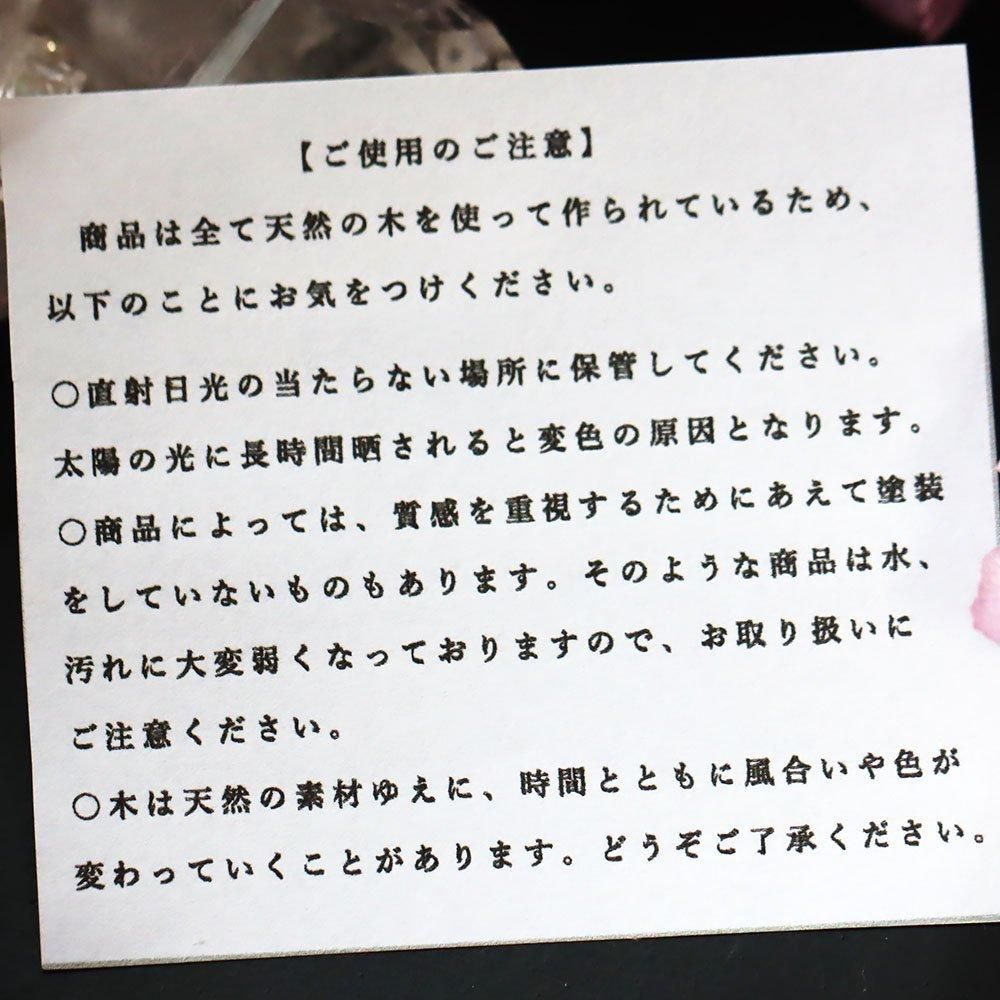 【ご使用のご注意】
商品は全て天然の木を使って作られているため、
以下のことにお気をつけください。
○直射日光の当たらない場所に保管してください。
太陽の光に長時間晒されると変色の原因となります。
○商品によっては、質感を重視するためにあえて塗装
をしていないものもあります。そのような商品は水、
汚れに大変弱くなっておりますので、お取り扱いに
ご注意ください。
○木は天然の素材ゆえに、時間とともに風合いや色が
変わっていくことがあります。どうぞご了承ください。